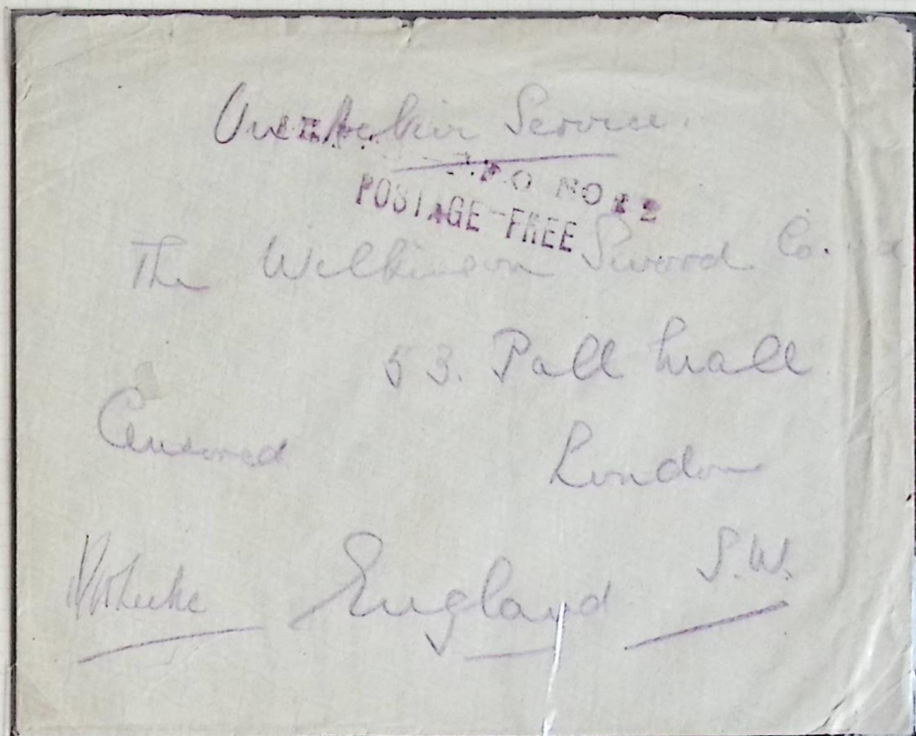 On Active Service.
P.O NO 22
POSTAGE-FREE
The Wilkinson Sword Co.
53. Pall Mall
Censored
London
England
S.W.